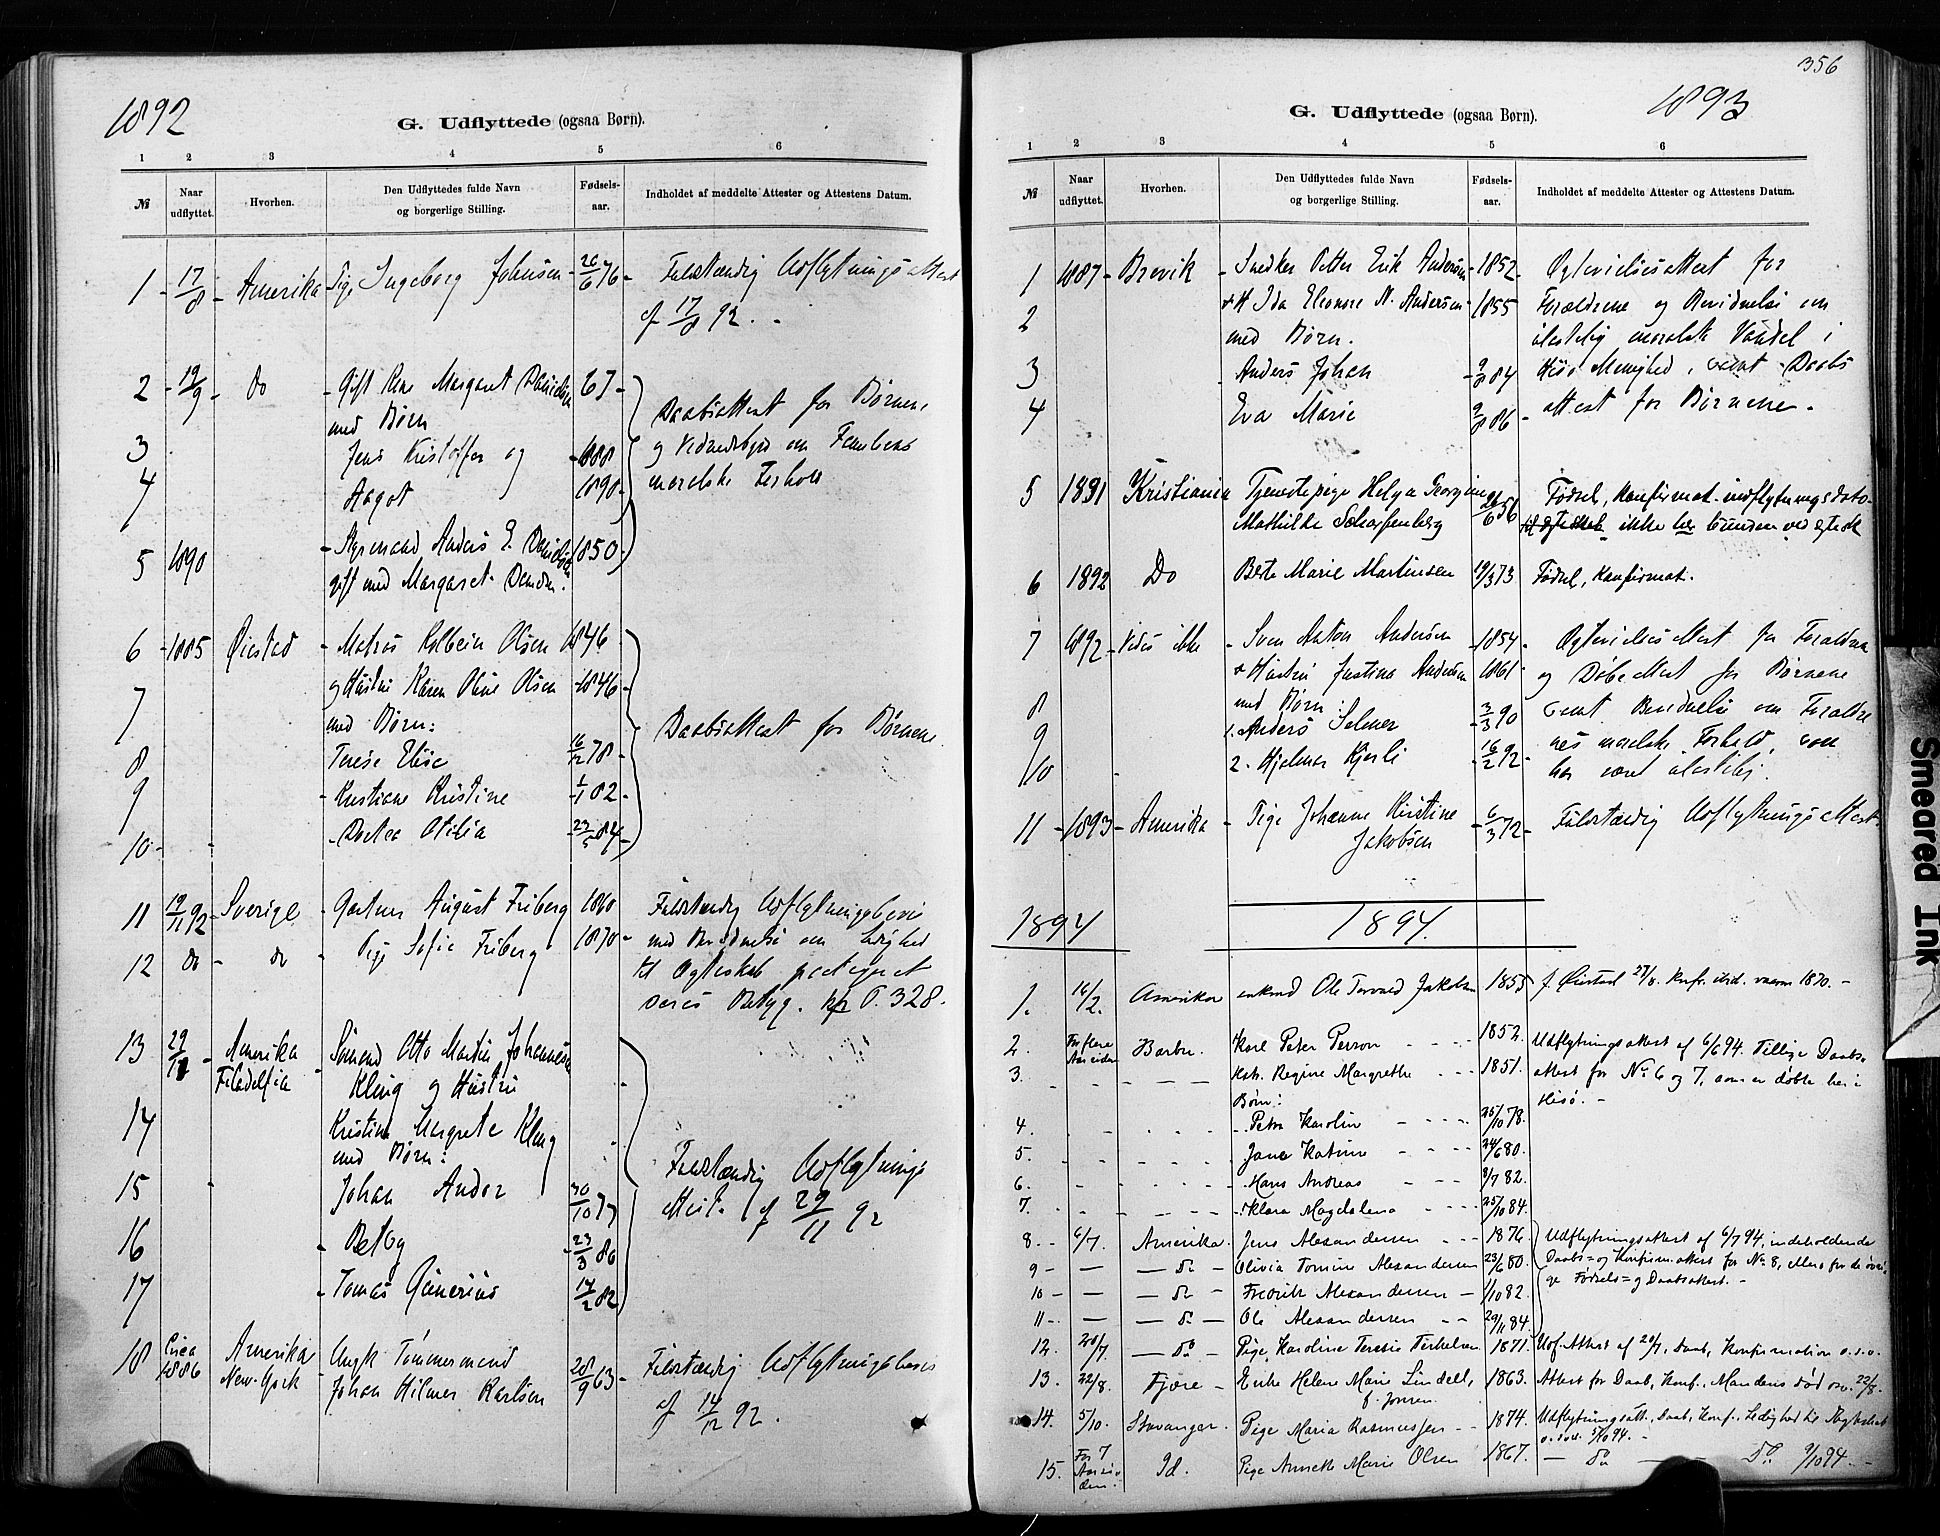 1892
G. Udflyttede (ogsaa Børn).
1 2 3 4 5 6
№ Naar udflyttet. Hvorhen. Den Udflyttedes fulde Navn og borgerlige Stilling. Fødselsaar. Indholdet af meddelte Attester og Attestens Datum.
1 - 17/8 - Amerika - Pige Ingeborg Johnsen - 26/6 76 - Fuldstændig Udflytningsattest
af 17/8 92.
2 - 19/9 - Do - Gift Margaret Danielsen 67 -
med Børn
Daabsattest for Børnene,
3 Jens Kristoffer og - 1888
og Vidnesbyrd om
4 Aagot 1890 -
moralske Forhold
5 1890 - Styrmand Anders E. 1850 -
gift med Margaret
6 - 1885 Øiestad - Matros Kolbein Olsen 1846 -
7 og Hustru Karen Oline Olsen - 1846 -
med Børn:
Daabsattest for Børnene
8 Terese Elise 16/2 78 -
9 - Kristiane Kristine - 1/1 82 -
10 - - Dortea Otilia - 23/5 84 -
11 19/11 92 - Sverige - Gartner August Friberg 1860 Fuldstændig Udflytningsbevis
12 do - do - Pige Sofie Friberg 1870 - med Bevidnelse om Ledighed
til Ægteskab
P. 328.
13 29/11 - Amerika Sømand Otto Martin Johannesen
Filadelfia Kling og Hustru
14 Kristine Margrete Kling
med Børn:
Fuldstændig Udflytnings
15 Johan Andor 30/10 77
attest af 29/11 92
16 - Betsy - 23/3 86
17 - Tomas 14/2 82
18 Circa 1886 Amerika New-York - Ungk Tømmermand
Johan Hilmer Karlsen 28/9 63 - Fuldstændig Udflytningsbevis
af 14/12 92.
356
1893
G. Udflyttede (ogsaa Børn).
1 2 3 4 5 6
№ Naar udflyttet. Hvorhen. Den Udflyttedes fulde Navn og borgerlige Stilling. Fødselsaar. Indholdet af meddelte Attester og Attestens Datum.
1 1887 - Brevik - Snedker Petter Erik Andersen - 1852 - Ægtevielsesattest for
2 & H Ida Eleonore N. Andersen - 1855 Forældrene og Bevidnelse om
med Børn. ulastelig moralsk Vandel i
3 Anders Johan - 9/8 84 Hisø Menighed, samt Daabs
4 Eva Marie 9/8 86 - attest for Børnene.
5 1891 Kristiania Tjenestepige Helga Georgine Fødsel, Konfirmat. indflytningsdato
Mathilde Scharffenberg 6 56 ikke her bunden ved Ægtesk
6 1892 Do Berte Marie Martinsen 19/3 73 Fødsel, Konfirmat.
7 1892 - Vides ikke - Sven Anton Andersen - 1854 - Ægtevielsesattest for Forældrene
& Hustru Justine Andersen 1861 - og Døbeattest for Børnene
8 med Børn: samt Bevidnelse om Foræld
9 1. Anders Selmer - 3/3 90 nes moralske Forhold, som
10 2. Hjalmar Kjerli - 16/2 92 - har været ulastelig.
11 - 1893 - Amerika - Pige Johanne Kristine Jakobsen - 6/3 72 - Fuldstændig Udflytningsattest.
1894 1894.
1. 16/2. Amerika enkmd Ole Torvald Jakobsen 1855 f. Øiestad 27/8. Konf. ibid. vaaren 1870. -
2. For flere Aar siden Barbu. Karl Peter Person - - - - 1852. Udflytningsattest af 6/6 94. Tillige Daabs-
3. - - - - Kstr. Regine Margrethe - - - 1851. attest for No 6 og 7, som er døbte her i
Børn: Hisø. -
4. - - - - Petra Karolin - - - - 25/10 78.
5. - - - - Jana Katrine - - - 24/6 80.
6. - - - - Hans Andreas - - - 8/7 82.
7. - - - - Klara Magdalena - - - - 25/10 84.
8. - 6/7. Amerika. Jens Alexandersen - - - 1876 Udflytningsattest af 6/7 94, indeholdende
9 - - - do - Olivia Tomine Alexandersen 23/6 80. Daabs= og Konfirm.attest for No 8, ellers for de øvri-
10 - - - do - Fredrik Alexandersen - 1/10 82. ge Fødsels= og Daabsattest. -
11 - - - do - Ole Alexandersen - - 29/11 84.
12. 20/7. - do - Pige Karoline Teresie Terkelsen 1871. Udf. Attest af 20/7. Daab, Konfirmation o.s.v.
13. 22/8. Fjære - Enke Helene Marie Lindell, 1863. Attest for Daab, Konf., Mandens død osv. 22/8.
f. Jensen.
14. 5/10. Stavanger. Pige Maria Rasmussen - - 1874. Udflytningsatt., Daab, Konf., Ledighed til Ægteskab
o.s.v. 5/10 94. -
15. For 7 Aar siden Id. Pige Anneth Marie Olsen 1867. - do - - do 9/10 94. -
Smeared Ink